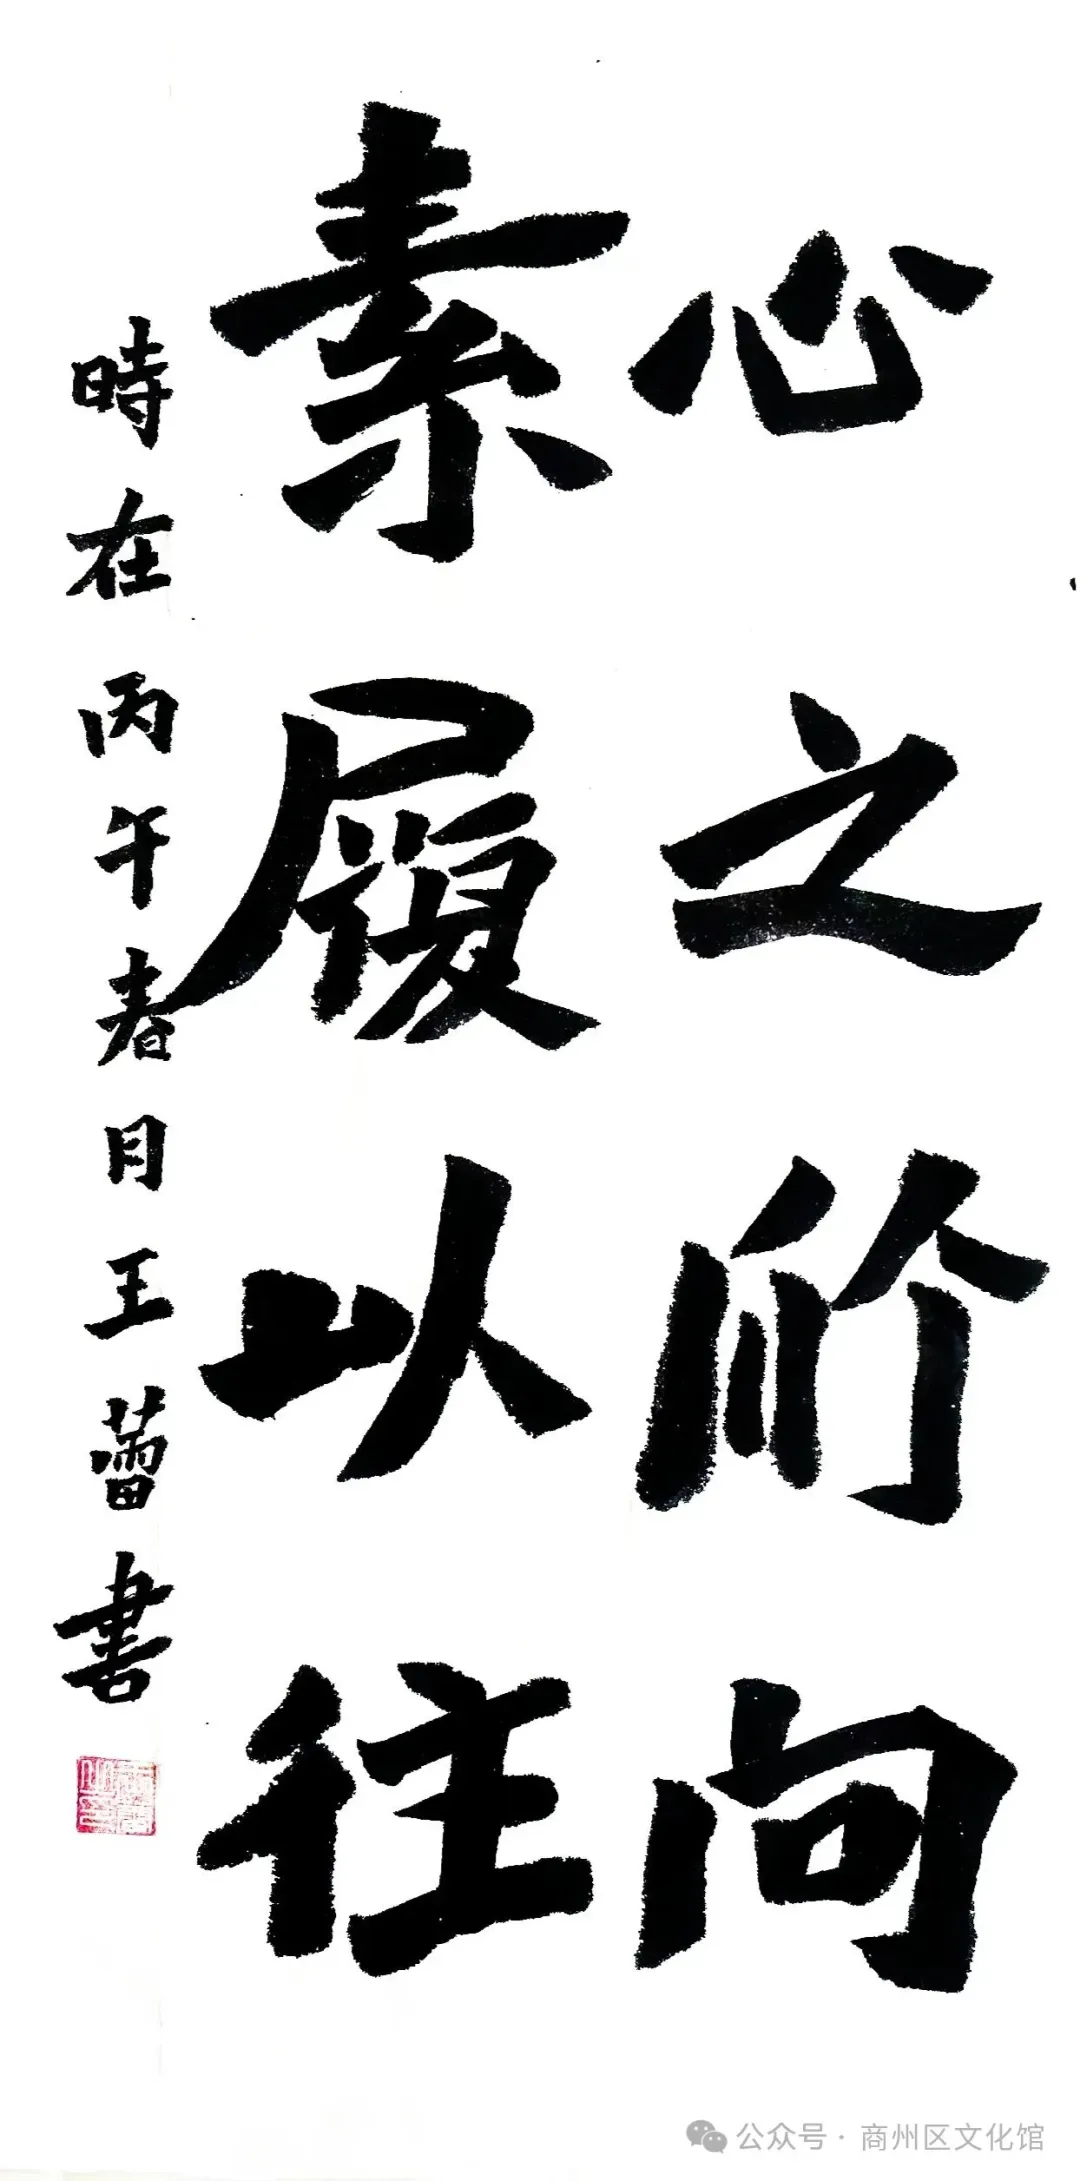 心之所向
素履以往
時在丙午春月王蕾書
公众号·商州区文化馆